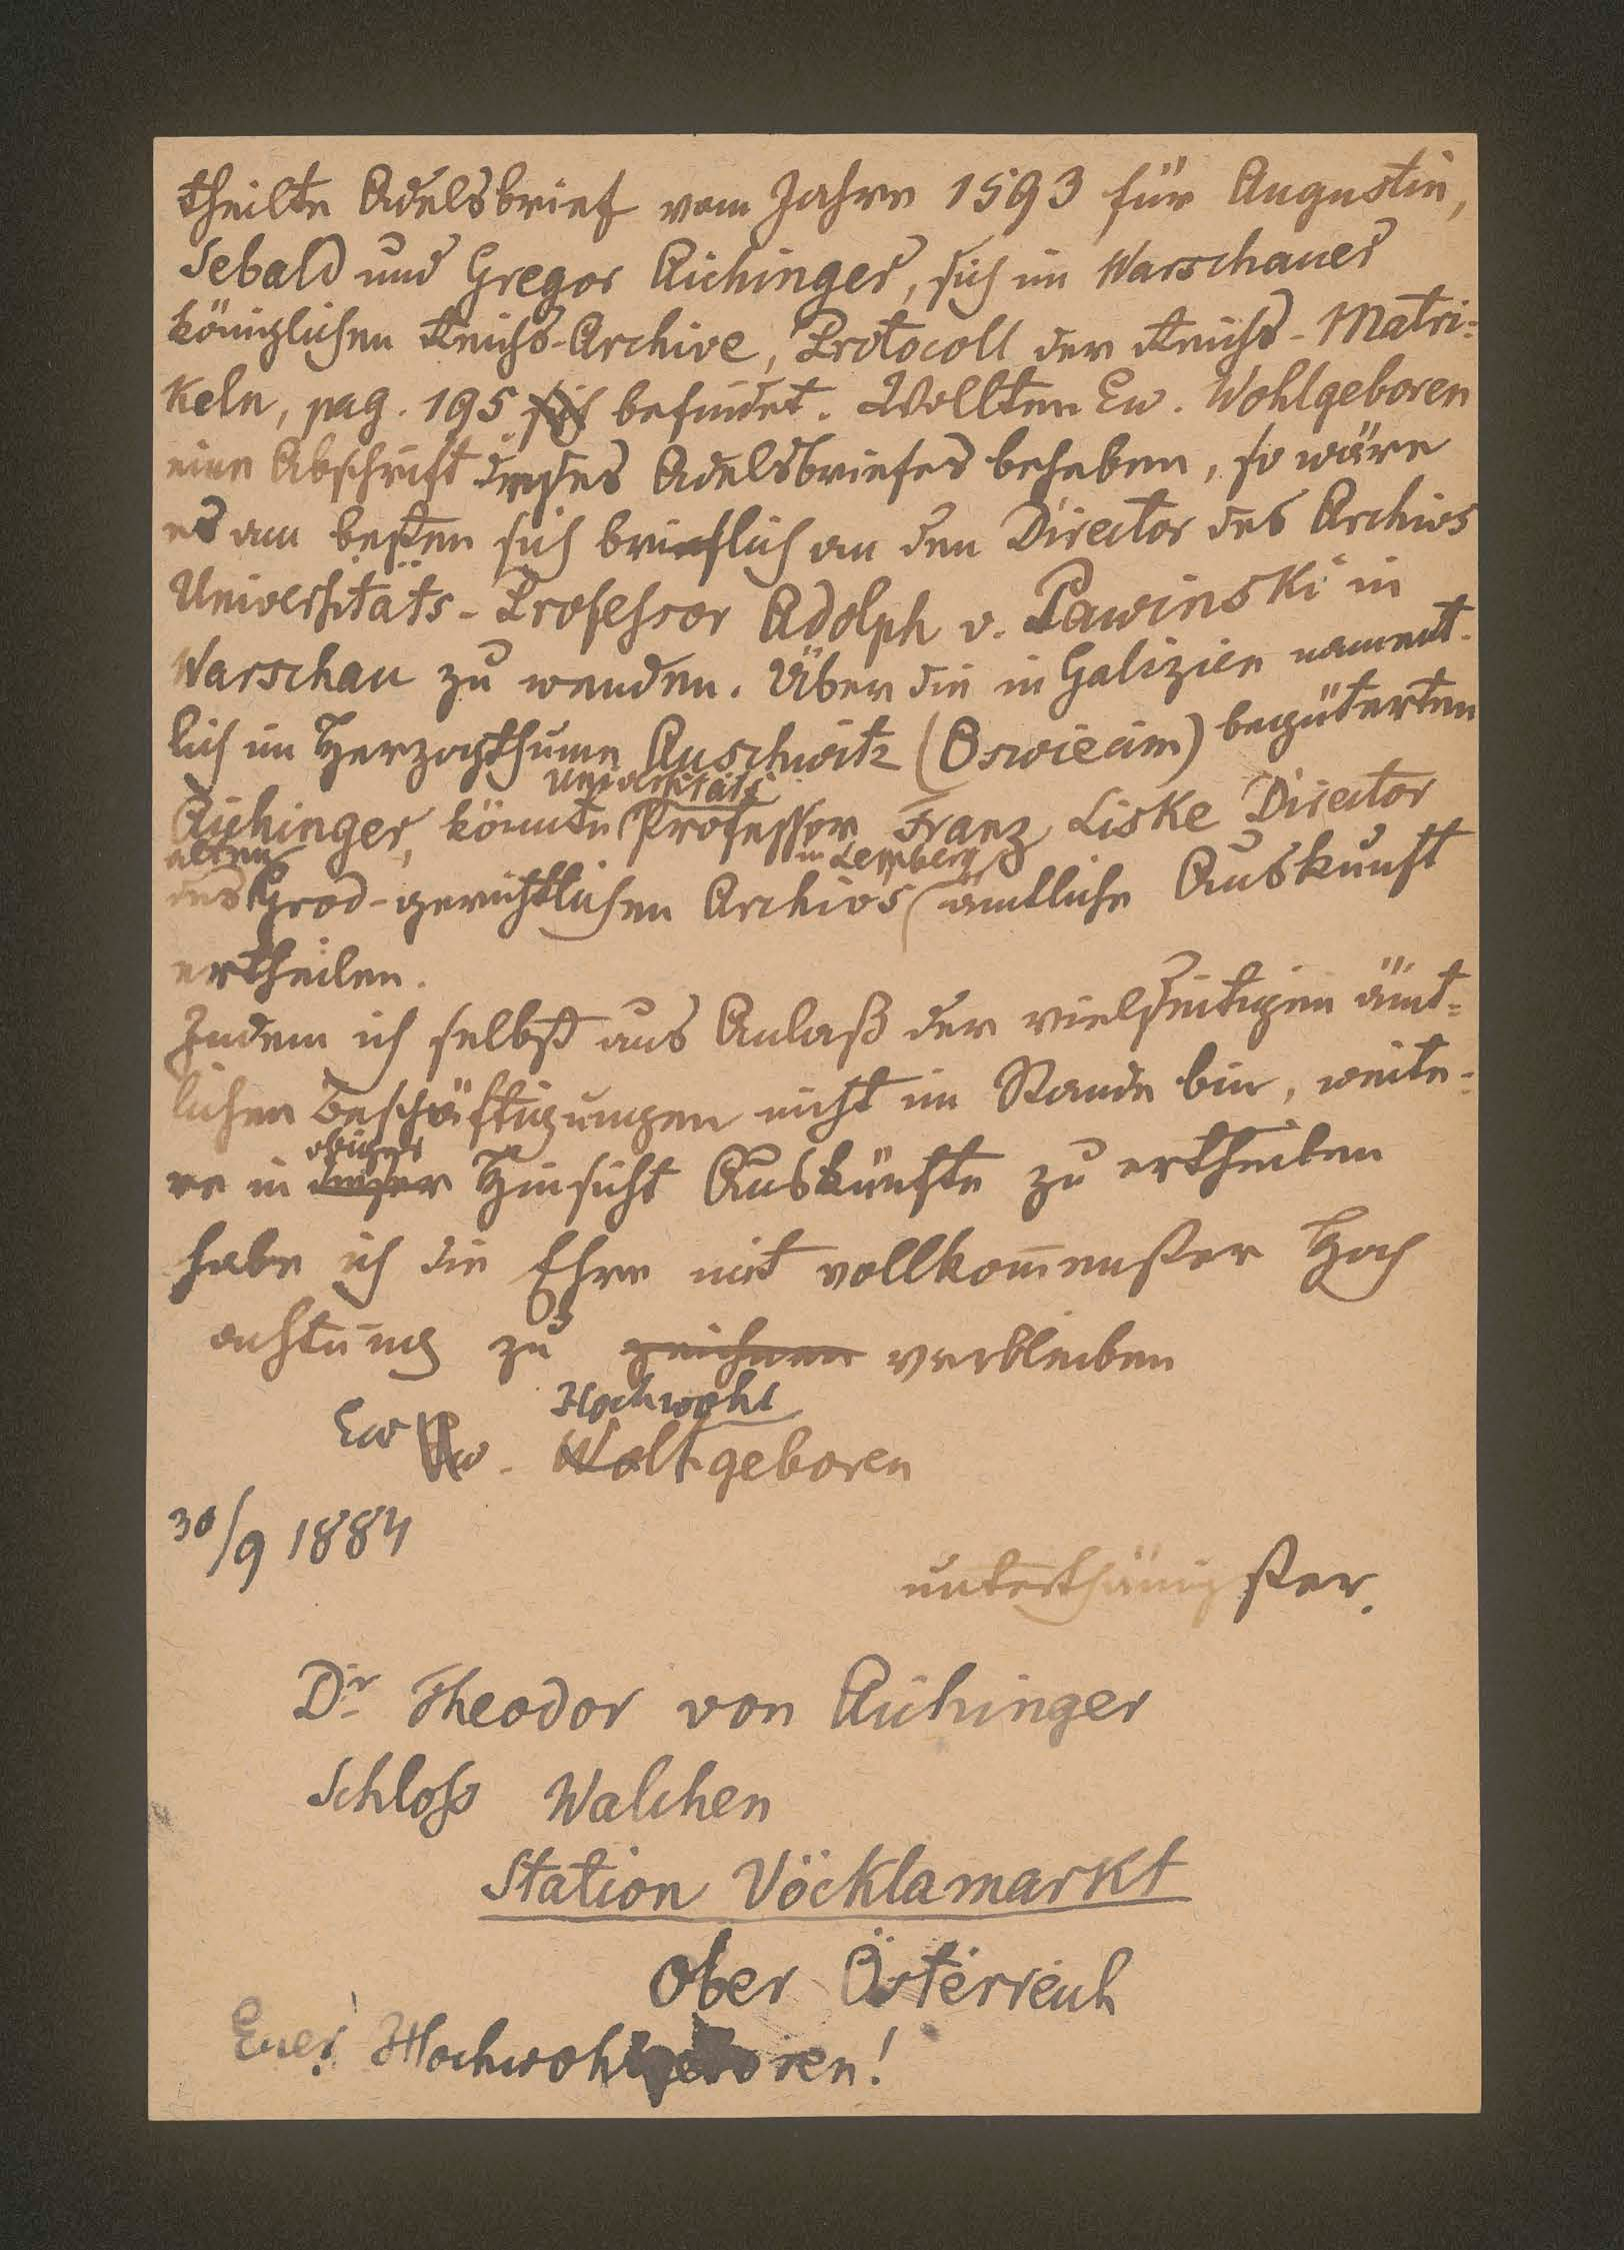 theilte Adelsbrief vom Jahre 1593 für Augustin,
Sebald und Gregor Aichinger, sich im Warschauer
königlichen Reichs-Archive, Protocoll der Reichs-Matri-
keln, pag. 195 sich befindet. Wollten Ew. Wohlgeboren
eine Abschrift dieses Adelsbriefes beheben, so wäre
es am besten sich brieflich an den Director des Archivs
Universitäts-Professor Adolph v. Pawinski in
Warschau zu wenden. Über die in Galizien nament-
lich im Herzogthume Auschwitz (Oswiecim) begüterten
Universitäts
Aichinger, könnte Professor Franz Liske Director
alten in Lemberg
des Grod-gerichtlichen Archivs ämtliche Auskunft
ertheilen.
Indem ich selbst aus Anlaß der vielseitigen ämt-
lichen Beschäftigungen nicht im Stande bin, weite-
obiger
re in dieser Hinsicht Auskünfte zu ertheilen
habe ich die Ehre mit vollkom̄enster Hoch
achtung zu zeichnen verbleiben
Hochwohl
Ew Ew. Wohlgeboren
30/9 1884
unterthänigster.
Dr Theodor von Aichinger
Schloss Walchen
Station Vöcklamarkt
Ober Österreich
Euer Hochwohlgeboren!